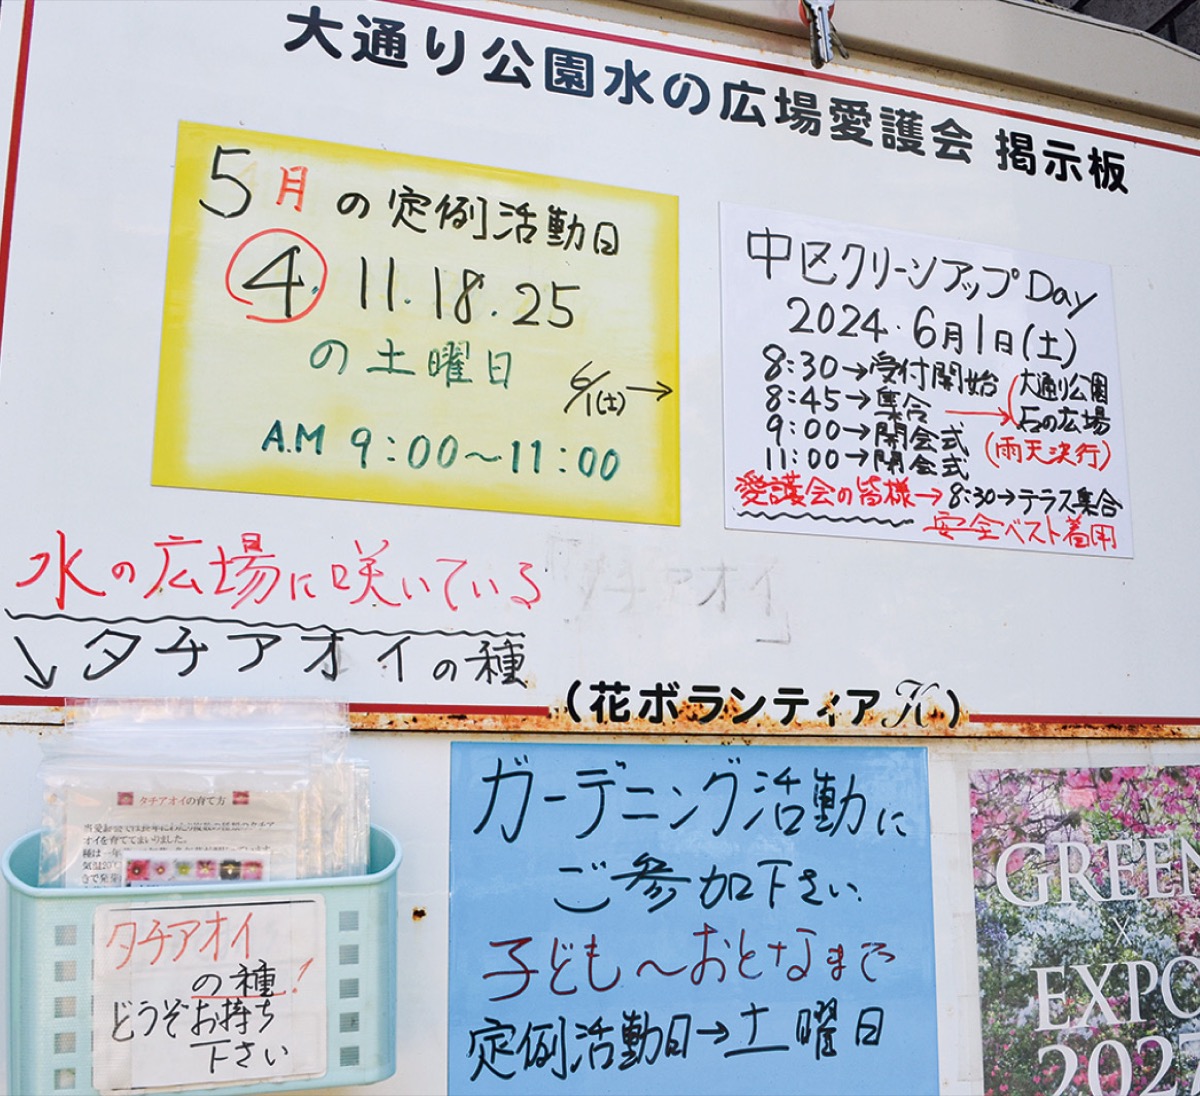 大通り公園水の広場愛護会 掲示板
5月の定例活動日
4. 11. 18. 25
の土曜日
6/1(土)→
A.M 9:00～11:00
中区クリーンアップDay
2024.6月1日(土)
8:30→受付開始
8:45→集合→
大通り公園
石の広場
9:00→開会式
(雨天決行)
11:00→閉会式
愛護会の皆様→8:30→テラス集合
安全ベスト着用
水の広場に咲いている
「タチアオイ」
↓タチアオイの種
(花ボランティアK)
タチアオイの育て方
イを育ててまいりました。
タチアオイ
の種!
どうぞお持ち
下さい
ガーデニング活動に
ご参加下さい
子ども～おとなまで
定例活動日→土曜日
GREEN
×
EXPO
2027